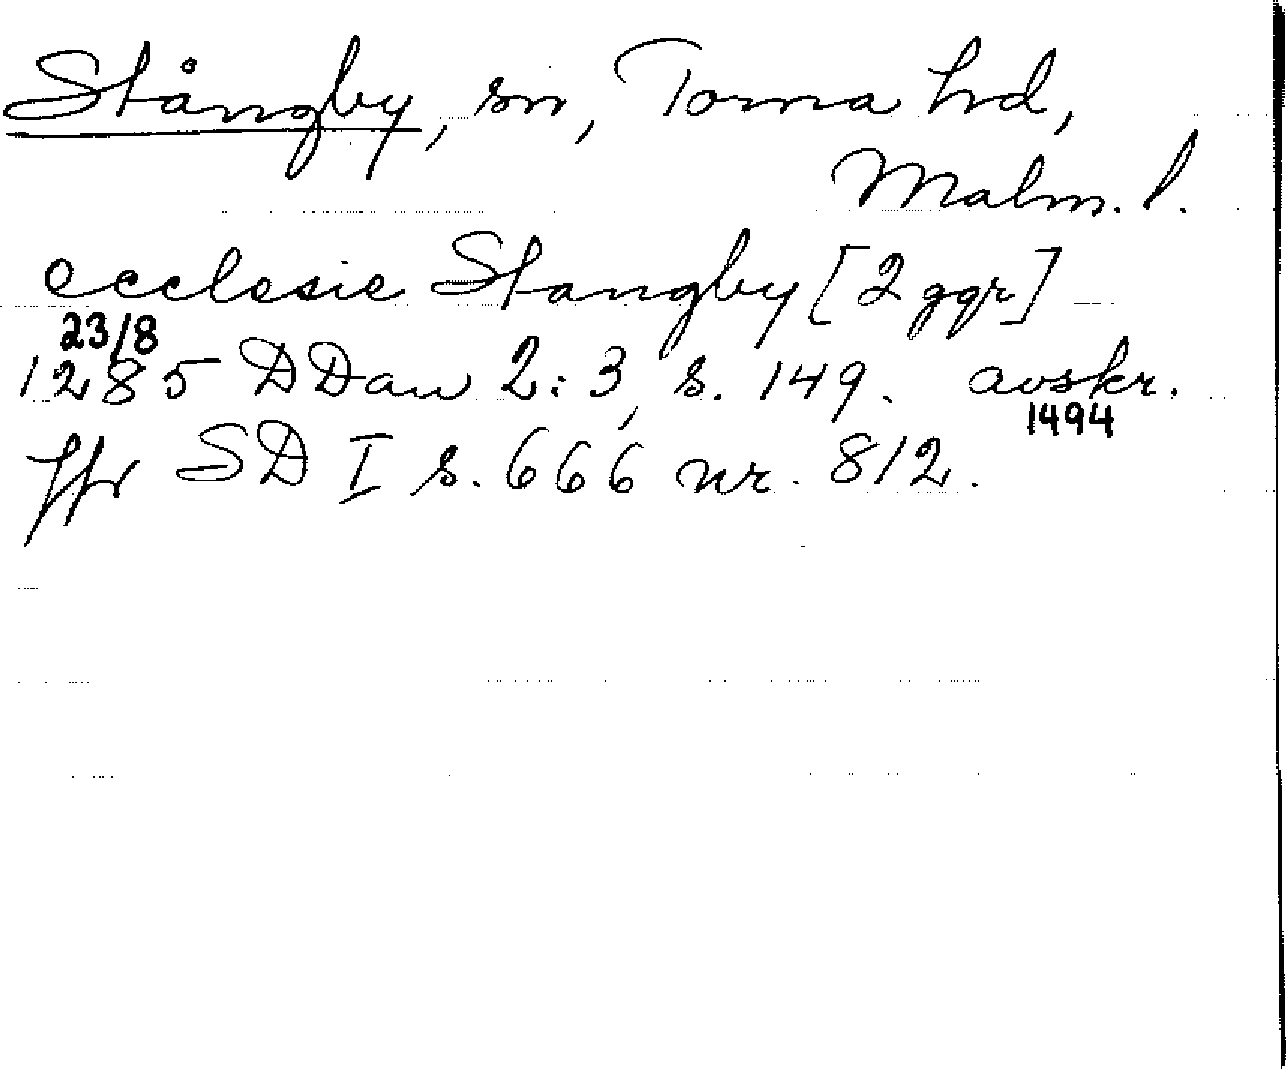 Stångby, sn, Torna hd,
Malm. l.
ecclesie Stangby [2 ggr]
23/8
1285 DDan 2:3, s. 149. avskr.
1494
Jfr SD I s. 666 nr. 812.